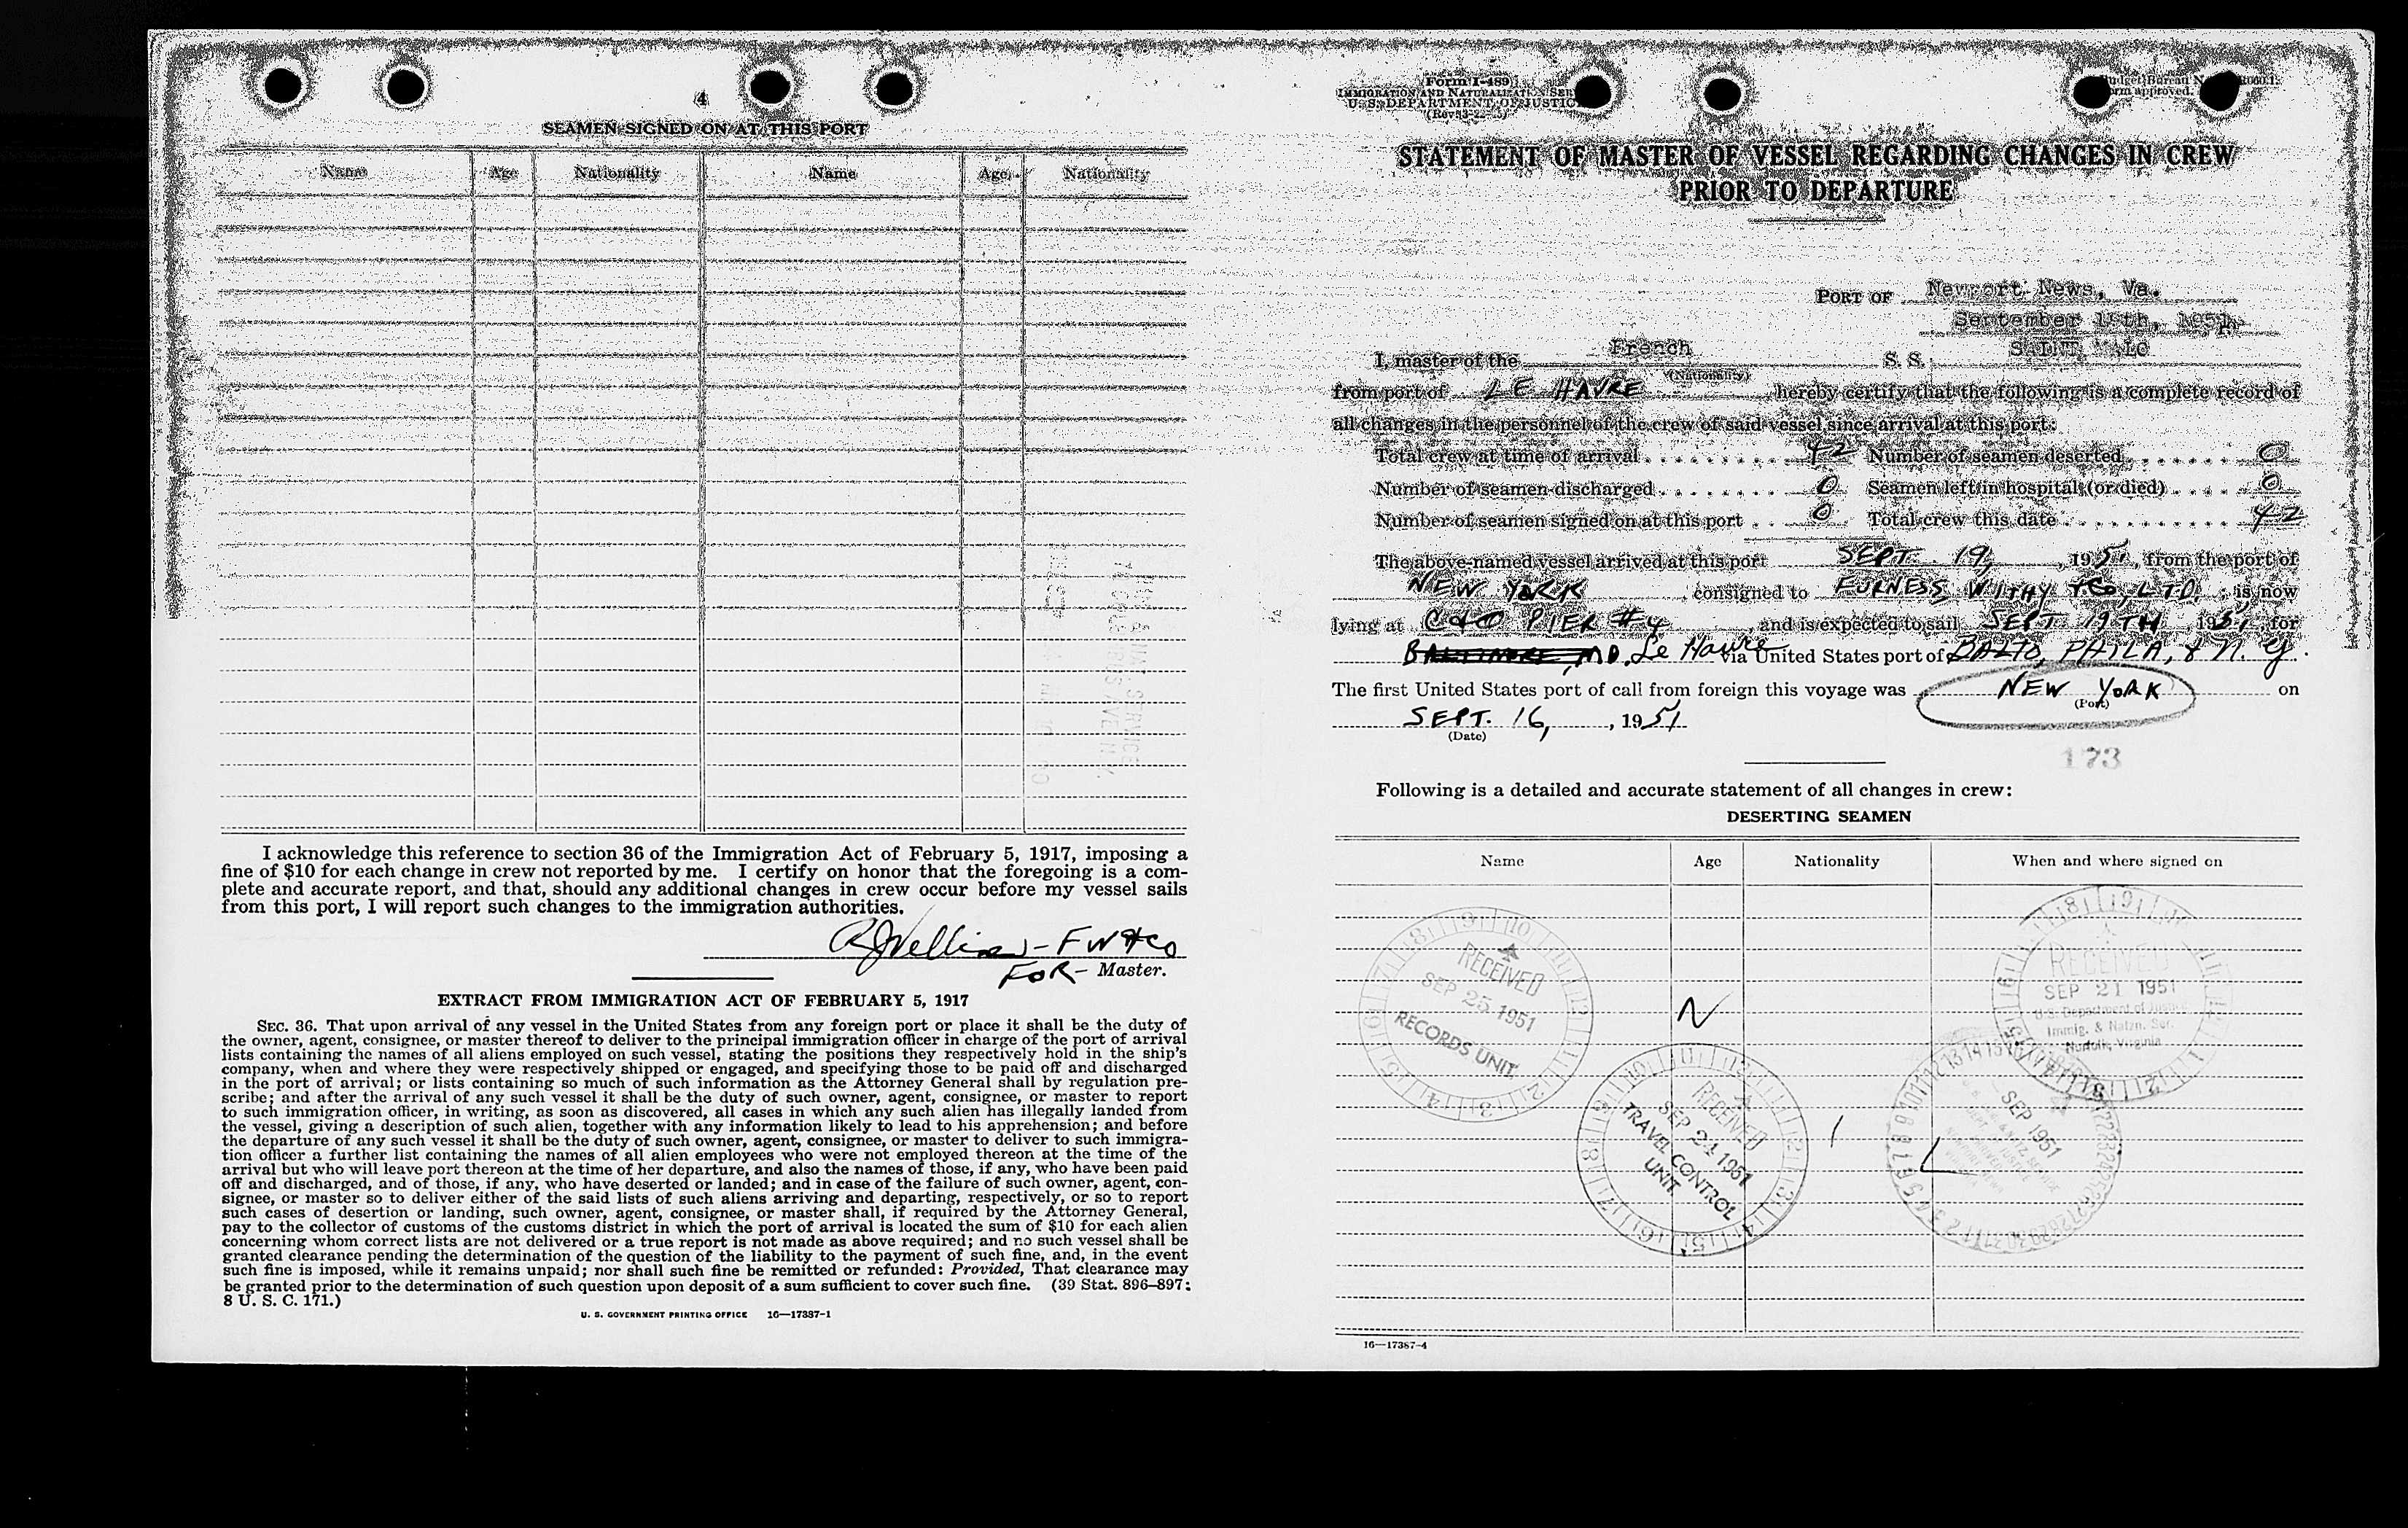 4
SEAMEN SIGNED ON AT THIS PORT
Name Age Nationality Name Age Nationality
I acknowledge this reference to section 36 of the Immigration Act of February 5, 1917, imposing a
fine of $10 for each change in crew not reported by me. I certify on honor that the foregoing is a com-
plete and accurate report, and that, should any additional changes in crew occur before my vessel sails
from this port, I will report such changes to the immigration authorities.
- FW & Co
FOR - Master.
EXTRACT FROM IMMIGRATION ACT OF FEBRUARY 5, 1917
SEC. 36. That upon arrival of any vessel in the United States from any foreign port or place it shall be the duty of
the owner, agent, consignee, or master thereof to deliver to the principal immigration officer in charge of the port of arrival
lists containing the names of all aliens employed on such vessel, stating the positions they respectively hold in the ship's
company, when and where they were respectively shipped or engaged, and specifying those to be paid off and discharged
in the port of arrival; or lists containing so much of such information as the Attorney General shall by regulation pre-
scribe; and after the arrival of any such vessel it shall be the duty of such owner, agent, consignee, or master to report
to such immigration officer, in writing, as soon as discovered, all cases in which any such alien has illegally landed from
the vessel, giving a description of such alien, together with any information likely to lead to his apprehension; and before
the departure of any such vessel it shall be the duty of such owner, agent, consignee, or master to deliver to such immigra-
tion officer a further list containing the names of all alien employees who were not employed thereon at the time of the
arrival but who will leave port thereon at the time of her departure, and also the names of those, if any, who have been paid
off and discharged, and of those, if any, who have deserted or landed; and in case of the failure of such owner, agent, con-
signee, or master so to deliver either of the said lists of such aliens arriving and departing, respectively, or so to report
such cases of desertion or landing, such owner, agent, consignee, or master shall, if required by the Attorney General,
pay to the collector of customs of the customs district in which the port of arrival is located the sum of $10 for each alien
concerning whom correct lists are not delivered or a true report is not made as above required; and no such vessel shall be
granted clearance pending the determination of the question of the liability to the payment of such fine, and, in the event
such fine is imposed, while it remains unpaid; nor shall such fine be remitted or refunded: Provided, That clearance may
be granted prior to the determination of such question upon deposit of a sum sufficient to cover such fine. (39 Stat. 896–897;
8 U. S. C. 171.)
U. S. GOVERNMENT PRINTING OFFICE 16—17387-1
Form I-489
IMMIGRATION AND NATURALIZATION SER
U. S. DEPARTMENT OF JUSTIC
form approved.
STATEMENT OF MASTER OF VESSEL REGARDING CHANGES IN CREW
PRIOR TO DEPARTURE
PORT OF Newport News, Va.
September 19th, 1951
I, master of the French S. S. SAINT MALO
(Nationality)
from port of LE HAVRE hereby certify that the following is a complete record of
all changes in the personnel of the crew of said vessel since arrival at this port:
Total crew at time of arrival 42 Number of seamen deserted 0
Number of seamen discharged 0 Seamen left in hospital (or died) 0
Number of seamen signed on at this port 0 Total crew this date 42
The above-named vessel arrived at this port SEPT. 19, 1951, from the port of
NEW YORK, consigned to FURNESS WITHY & CO, LTD.; is now
lying at C & O PIER #4, and is expected to sail SEPT 19TH, 1951, for
BALTIMORE, MD. Le Havre via United States port of BALTO, PHILA, & N. Y.
The first United States port of call from foreign this voyage was NEW YORK on
(Port)
SEPT. 16, 1951
(Date)
173
Following is a detailed and accurate statement of all changes in crew:
DESERTING SEAMEN
Name Age Nationality When and where signed on
RECEIVED
SEP 25 1951
RECORDS UNIT
N
RECEIVED
SEP 24 1951
TRAVEL CONTROL
UNIT
RECEIVED
SEP 21 1951
U.S. Department of Justice
Immig. & Natzn. Ser.
Norfolk, Virginia
SEP 1951
16—17387-4